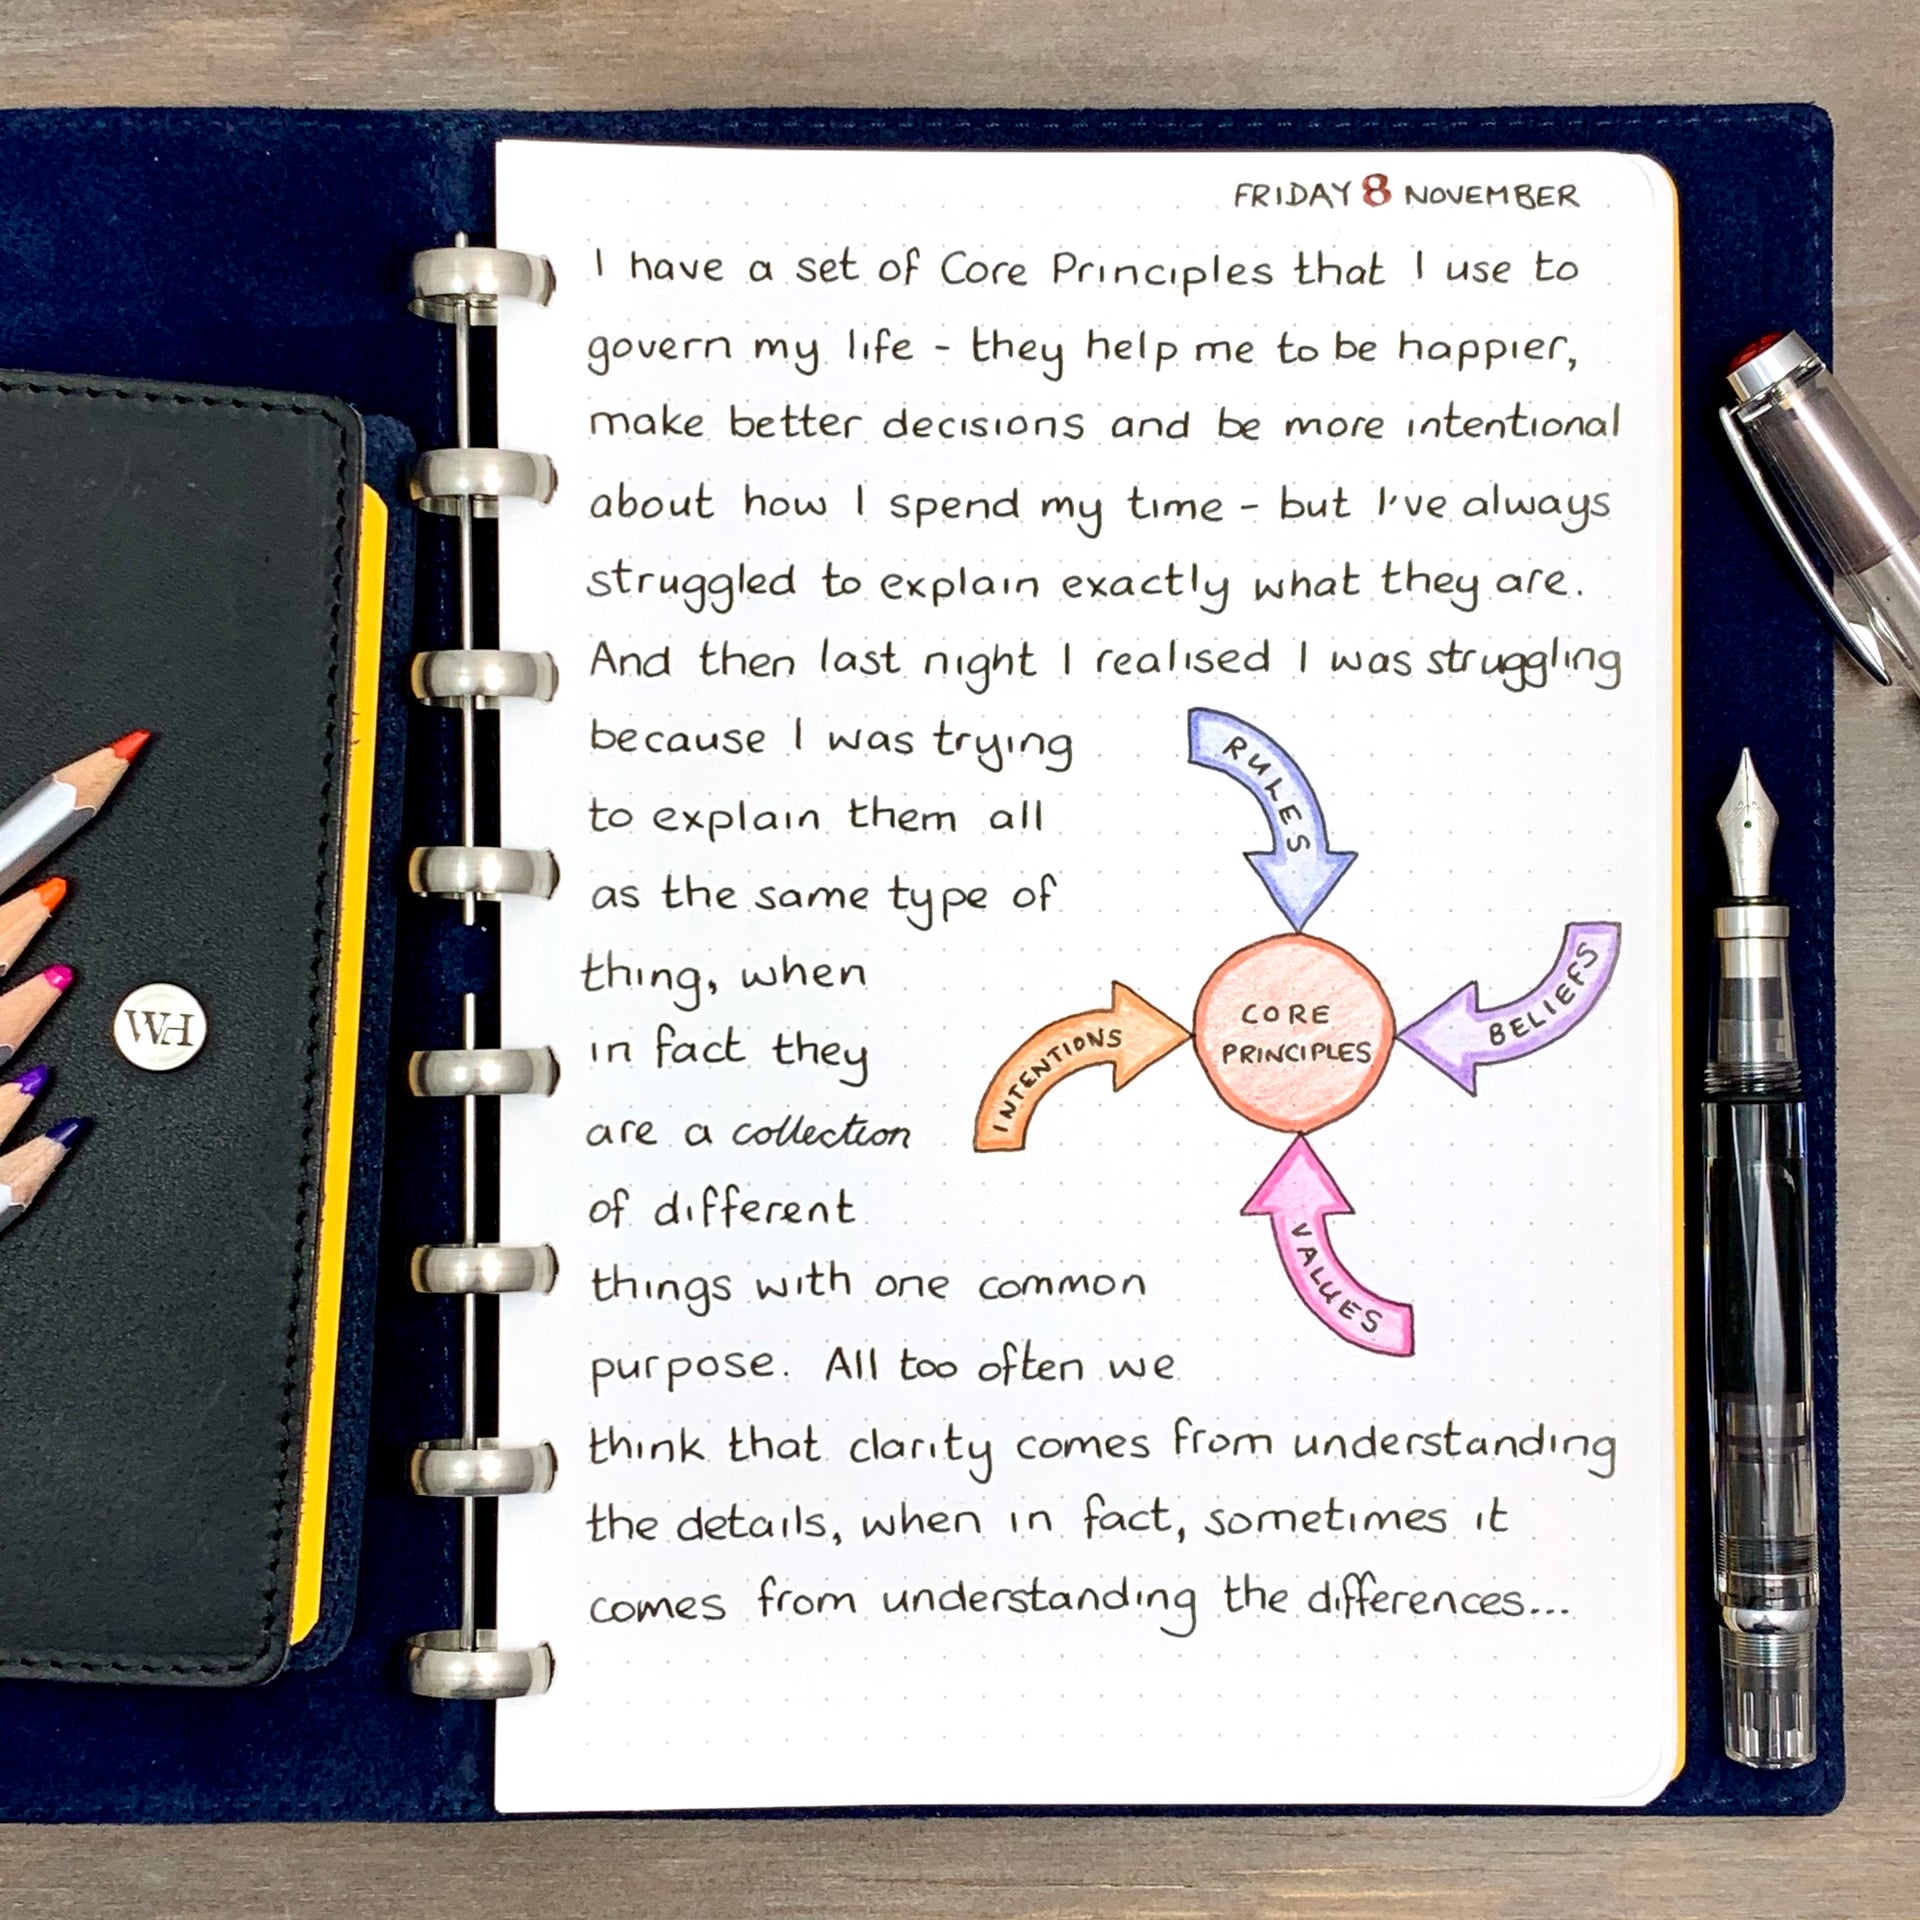 FRIDAY 8 NOVEMBER
I have a set of Core Principles that I use to
govern my life - they help me to be happier,
make better decisions and be more intentional
about how I spend my time - but I've always
struggled to explain exactly what they are.
And then last night I realised I was struggling
because I was trying
to explain them all
as the same type of
thing, when
in fact they
are a collection
of different
things with one common
purpose. All too often we
think that clarity comes from understanding
the details, when in fact, sometimes it
comes from understanding the differences...
RULES
BELIEFS
CORE
PRINCIPLES
INTENTIONS
VALUES
WH